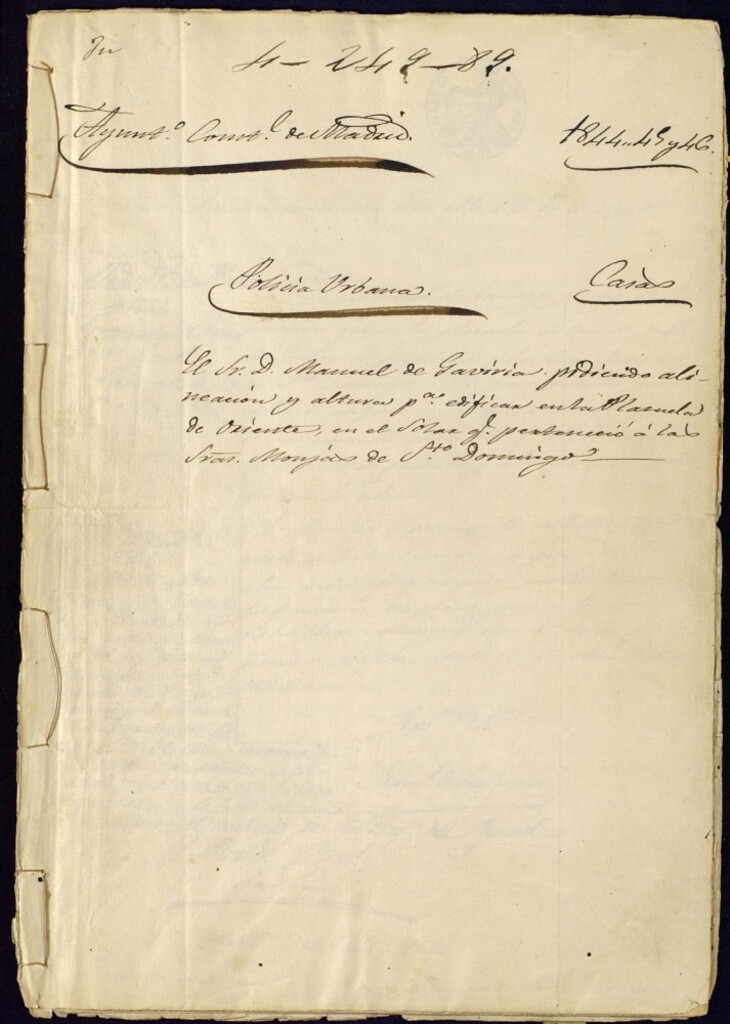 4-249-89.
Ayunt.º Const.l de Madrid.
1844..45 y 46.
Policia Urbana.
Casas
El Sr. D. Manuel de Gaviria pidiendo ali-
neacion y altura p.ª edificar en la Plazuela
de Oriente, en el Solar q.e perteneció á las
Sras. Monjas de S.to Domingo